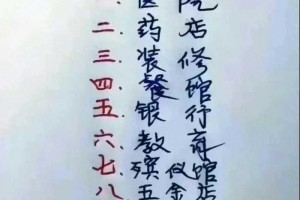 一. 医院
二. 药店
三. 装修
四. 餐馆
五. 银行
六. 教育
七. 殡仪馆
八. 五金店